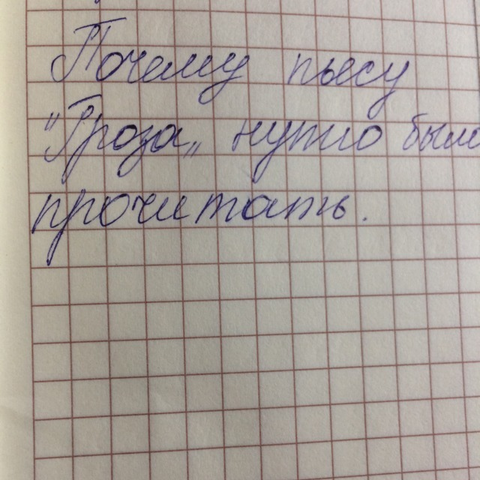 Почему пьесу
"Гроза„ нужно было
прочитать.